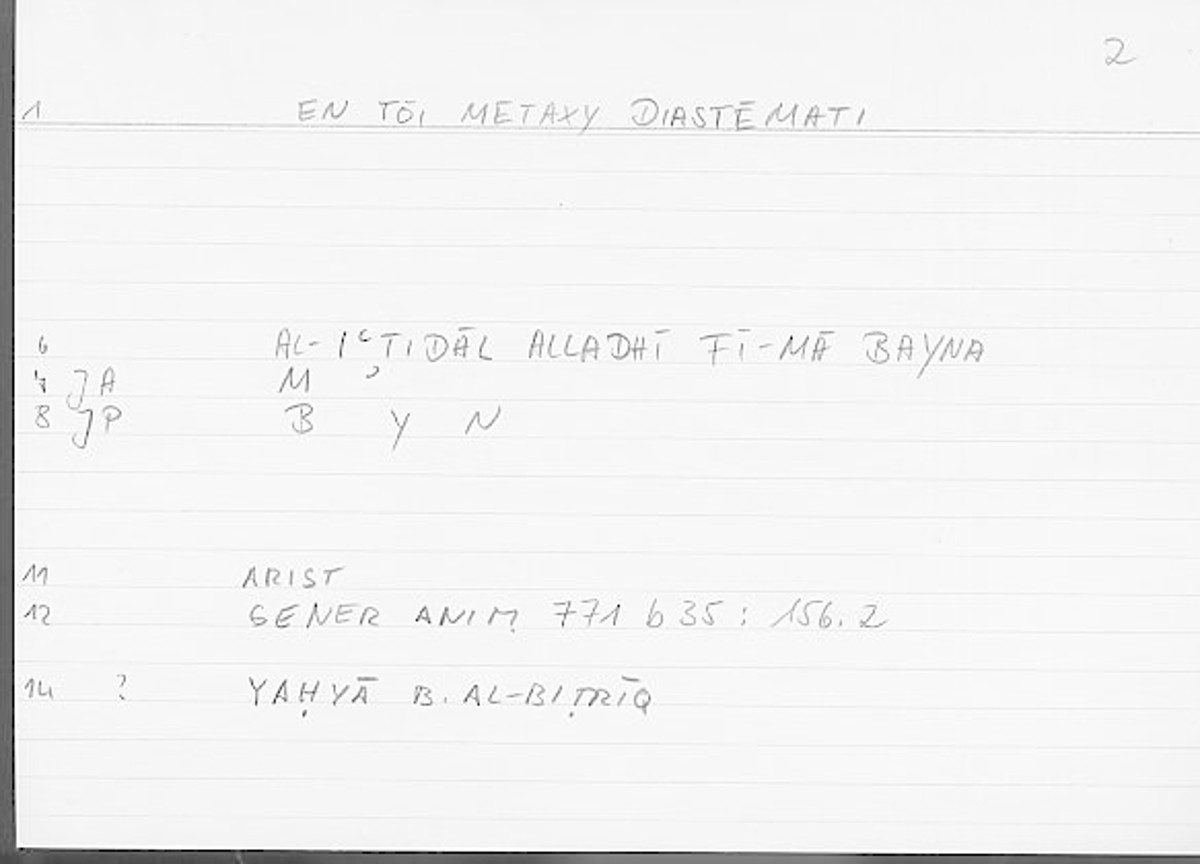 2
1 EN TŌI METAXY DIASTĒMATI
6 AL-IʿTIDĀL ALLADHĪ FĪ-MĀ BAYNA
7 JA M ʾ
8 JP B Y N
11 ARIST
12 GENER ANIM 771 b 35 : 156.2
14 ? YAḤYĀ B. AL-BIṬRĪQ